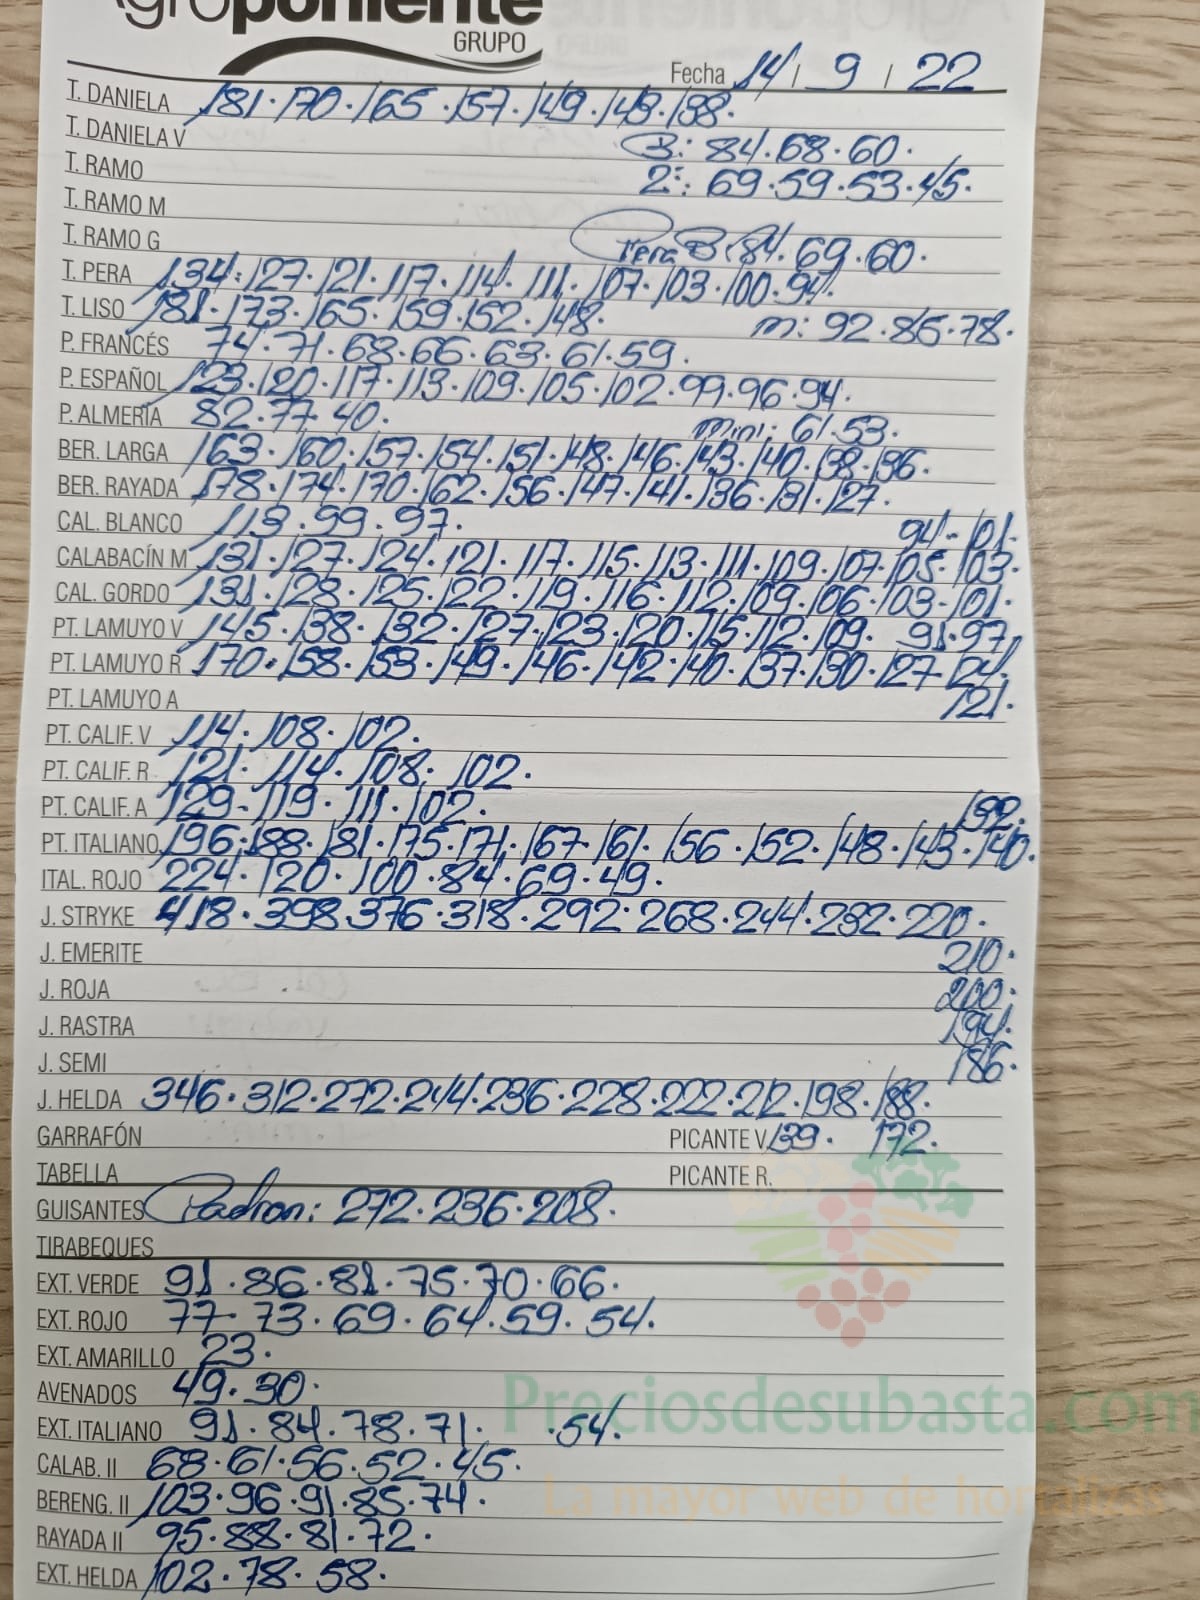 Agroponiente
GRUPO
Fecha 14 / 9 / 22
T. DANIELA 181.170.165.157.149.143.138.
T. DANIELA V B: 84.68.60.
T. RAMO 2ª: 69.59.53.45.
T. RAMO M
T. RAMO G Pera B: 84.69.60.
T. PERA 134.127.121.117.114.111.107.103.100.94.
T. LISO 181.173.165.159.152.148. m: 92.85.78.
P. FRANCÉS 74.71.68.66.63.61.59.
P. ESPAÑOL 123.120.117.113.109.105.102.99.96.94.
P. ALMERÍA 82.77.40. mini: 61.53.
BER. LARGA 163.160.157.154.151.148.146.143.140.138.136.
BER. RAYADA 178.174.170.162.156.147.141.136.131.127.
CAL. BLANCO 113.99.97. 94-101.
CALABACÍN M 131.127.124.121.117.115.113.111.109.107.105.103.
CAL. GORDO 131.128.125.122.119.116.112.109.106.103-101.
PT. LAMUYO V 145.138.132.127.123.120.115.112.109. 91.97.
PT. LAMUYO R 170.158.153.149.146.142.140.137.130.127-124.
PT. LAMUYO A 121.
PT. CALIF. V 114.108.102.
PT. CALIF. R 121.114.108.102.
PT. CALIF. A 129-119.111.102. 132.
PT. ITALIANO 196.188.181.175.171.167.161.156.152.148.143.140.
ITAL. ROJO 224.120.100.84.69.49.
J. STRYKE 418.398.376.318.292.268.244.232.220.
J. EMERITE 210.
J. ROJA 200.
J. RASTRA 194.
J. SEMI 186.
J. HELDA 346.312.272.244.236.228.222.212.198.188.
GARRAFÓN PICANTE V. 139. 172.
TABELLA PICANTE R.
GUISANTES Padron: 272.236.208.
TIRABEQUES
EXT. VERDE 91.86.81.75.70.66.
EXT. ROJO 77.73.69.64.59.54.
EXT. AMARILLO 23.
AVENADOS 49.30.
Preciosdesubasta.com
EXT. ITALIANO 91.84.78.71. .54.
CALAB. II 68.61.56.52.45.
La mayor web de hortalizas
BERENG. II 103.96.91.85.74.
RAYADA II 95.88.81.72.
EXT. HELDA 102.78.58.